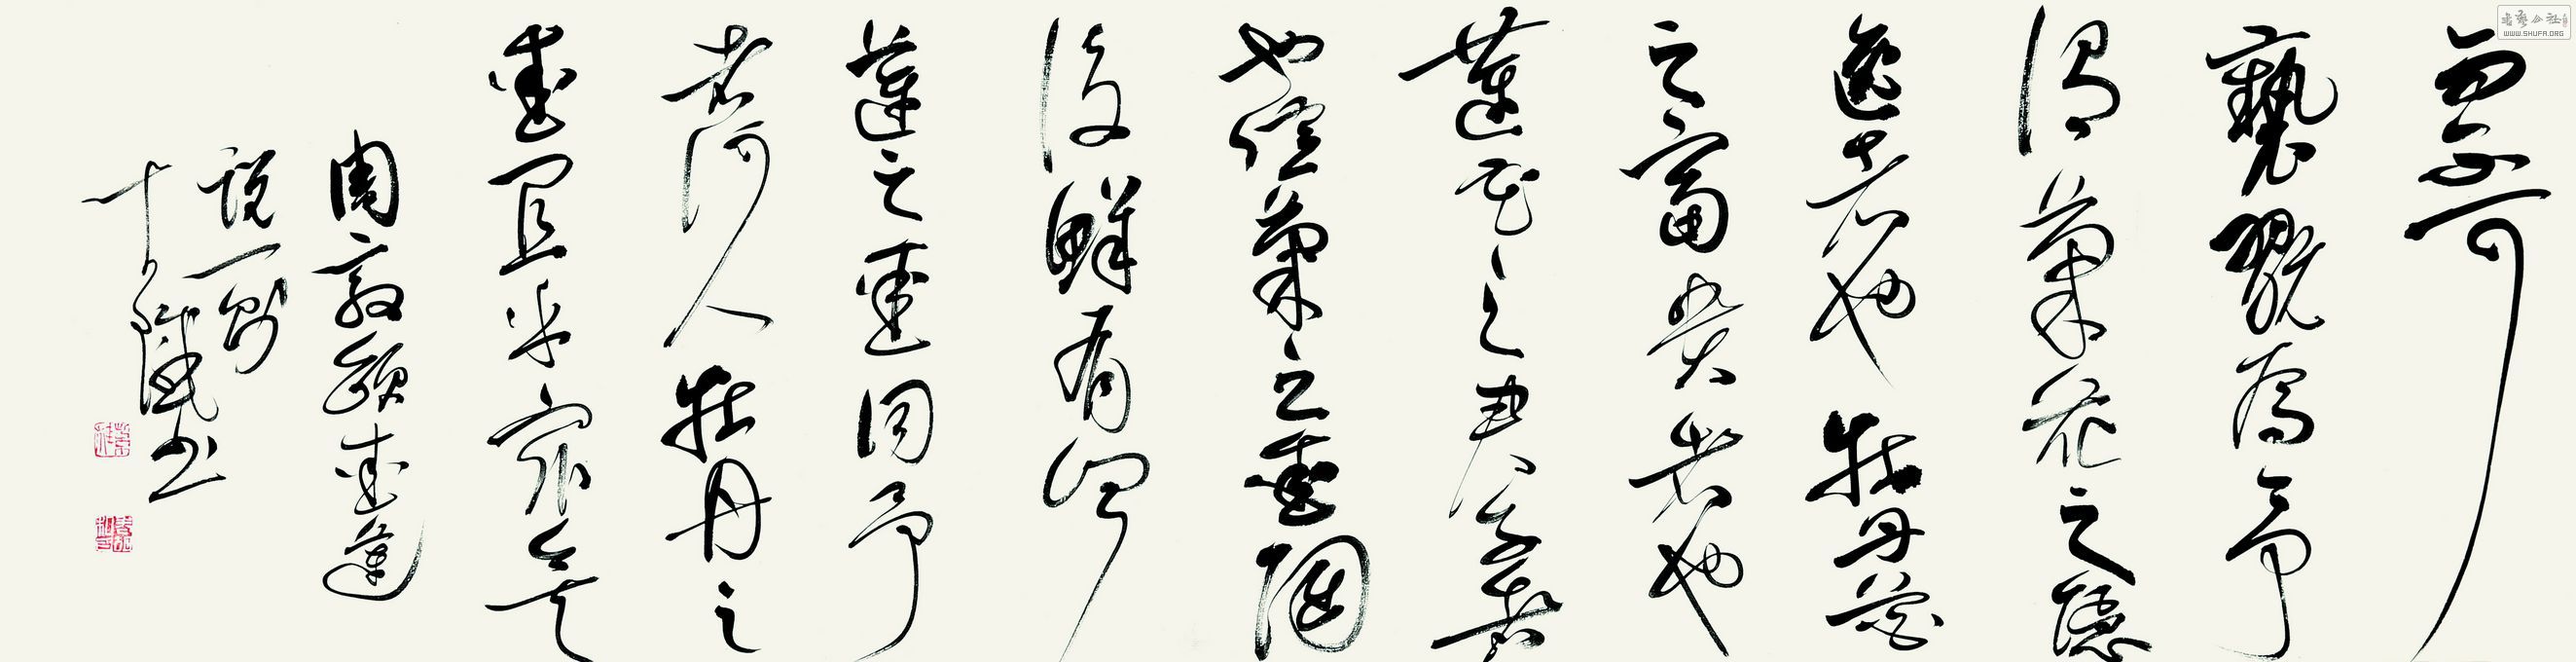 而不可
褻翫焉予
謂菊花之隱
逸者也牡丹花
之富貴者也
蓮花之君子者
也噫菊之愛陶
後鮮有聞
蓮之愛同予
者何人牡丹之
愛宜乎衆矣
周敦頤愛蓮
說一則
书
WWW.SHUFA.ORG